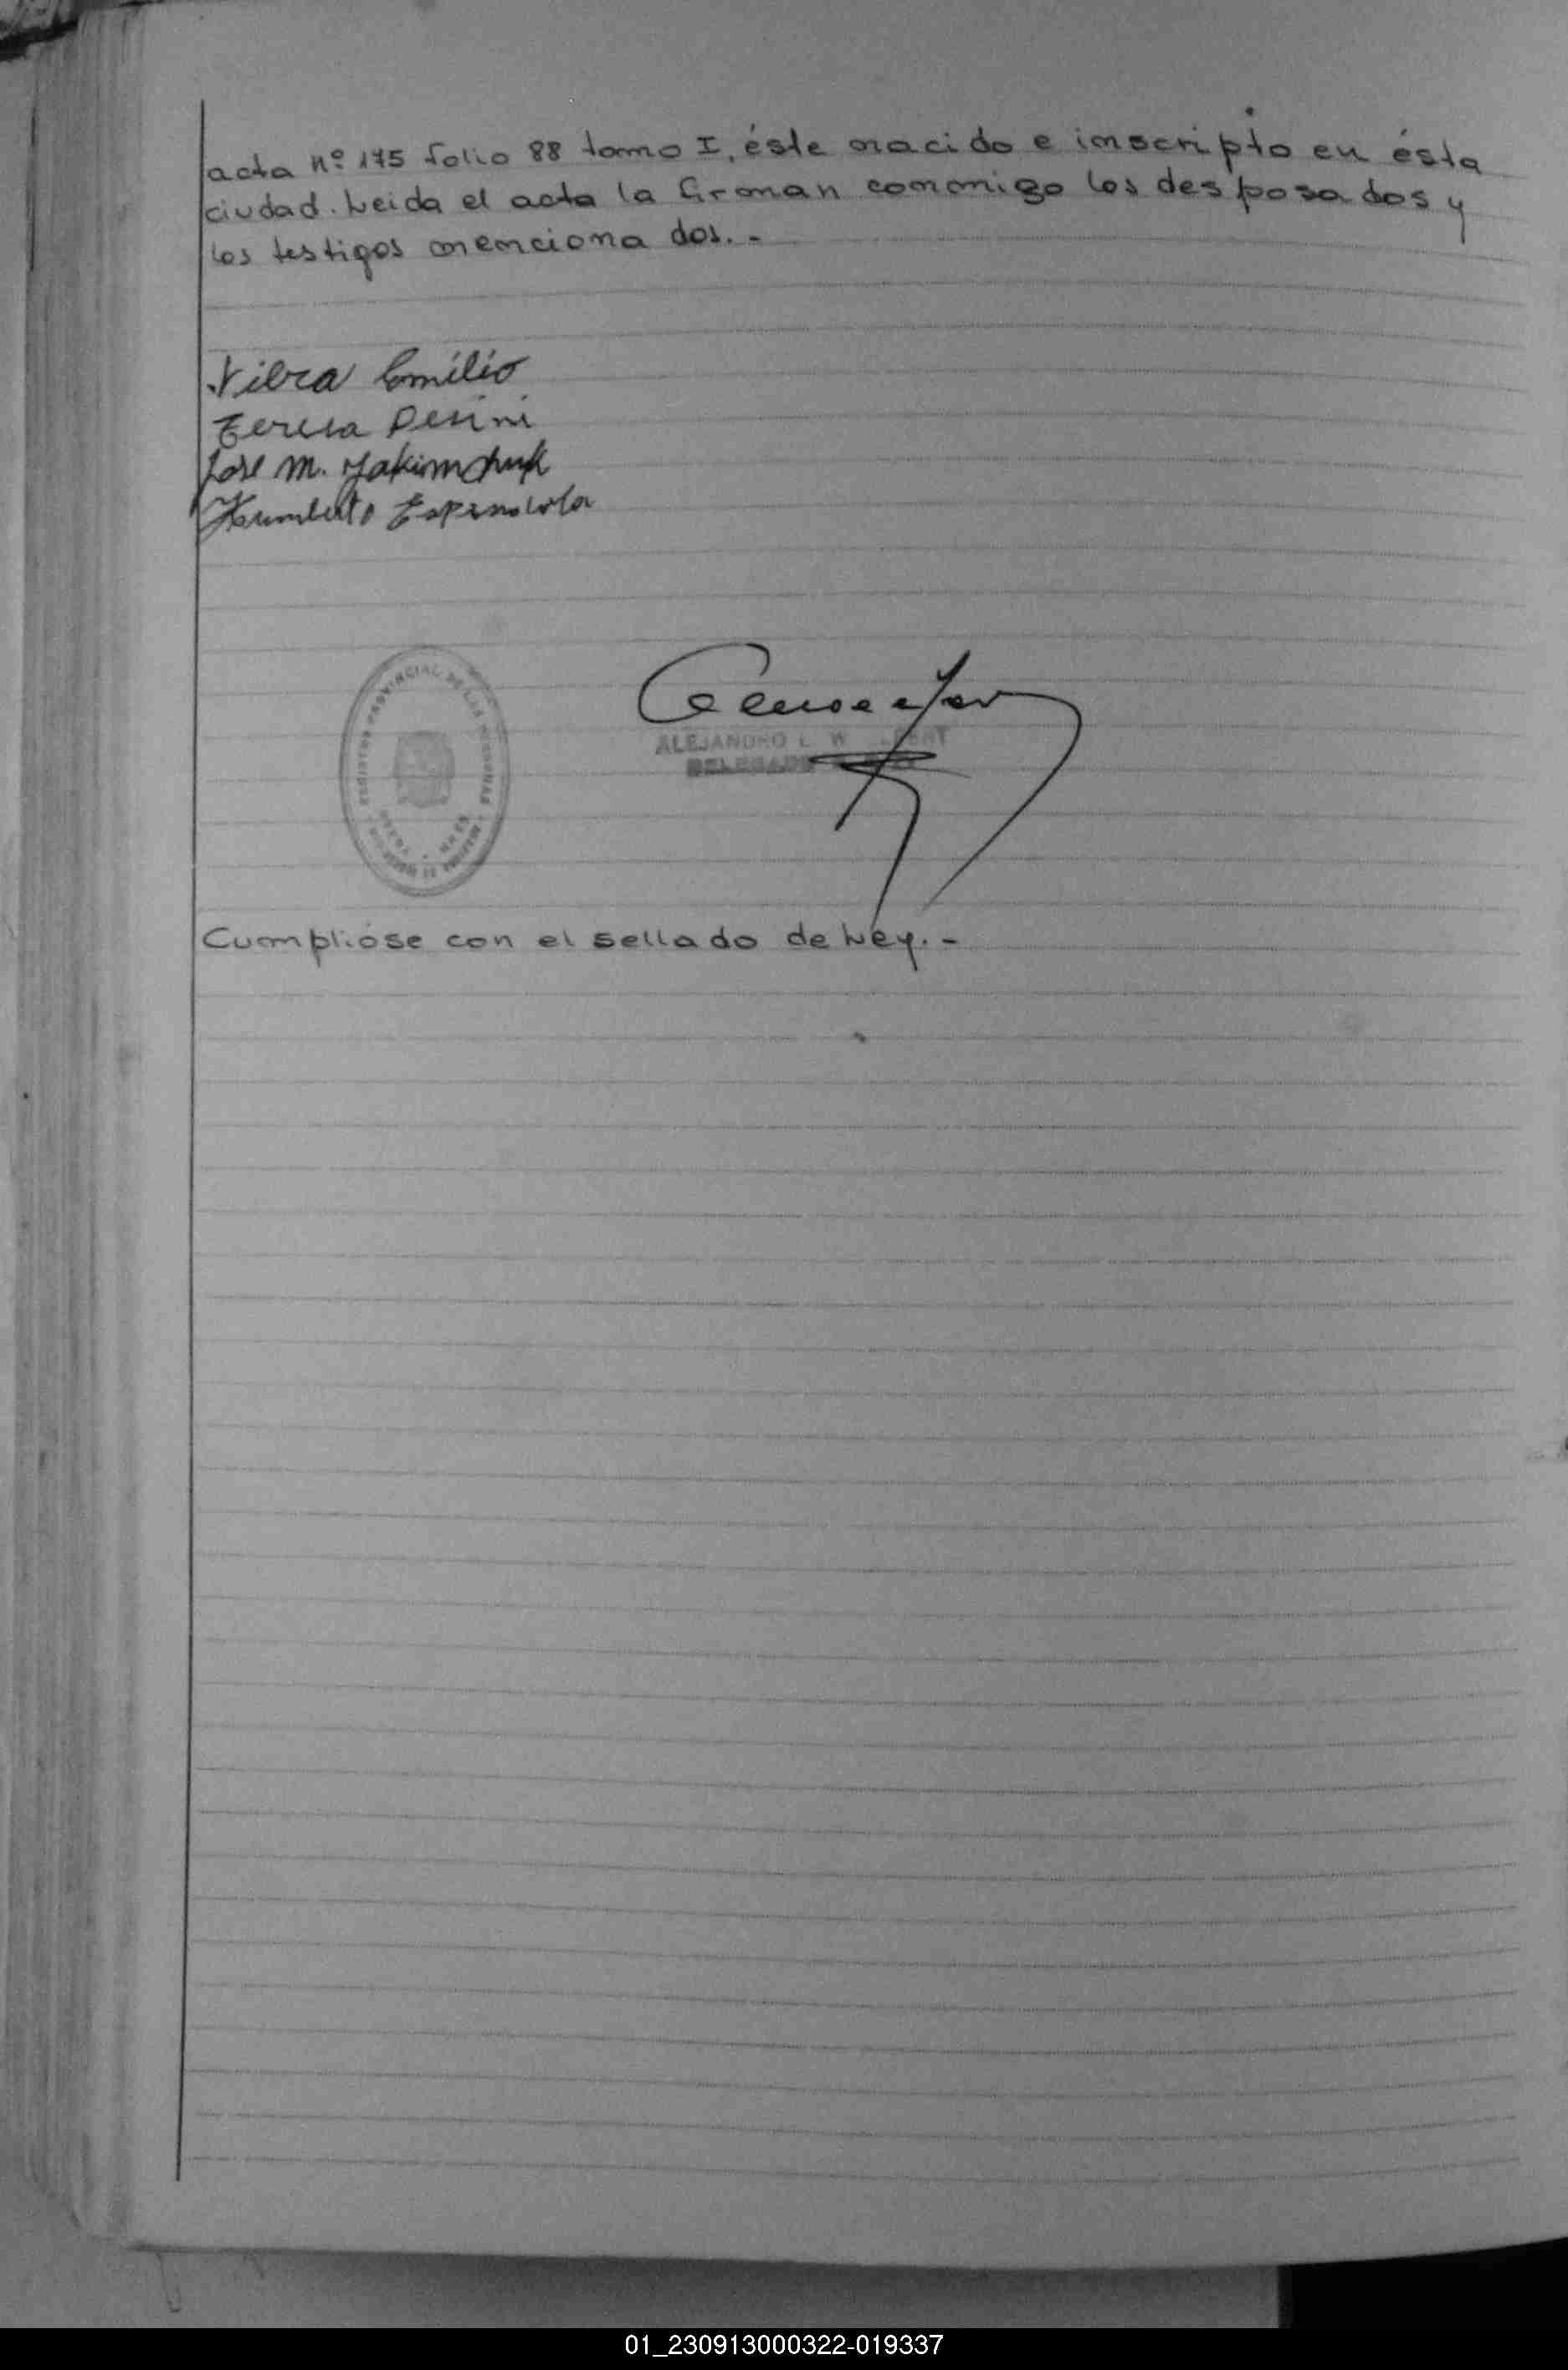 acta nº 175 folio 88 tomo I, éste nacido e inscripto en ésta
ciudad. Leida el acta la firman conmigo los desposados y
los testigos mencionados.-
Vibra Emilio
Teresa
José M. Yakimchuk
Humberto Espindola
REGISTRO PROVINCIAL DE LAS PERSONAS
ALEJANDRO L. W
DELEGADO
Cumplióse con el sellado de Ley.-
01_230913000322-019337